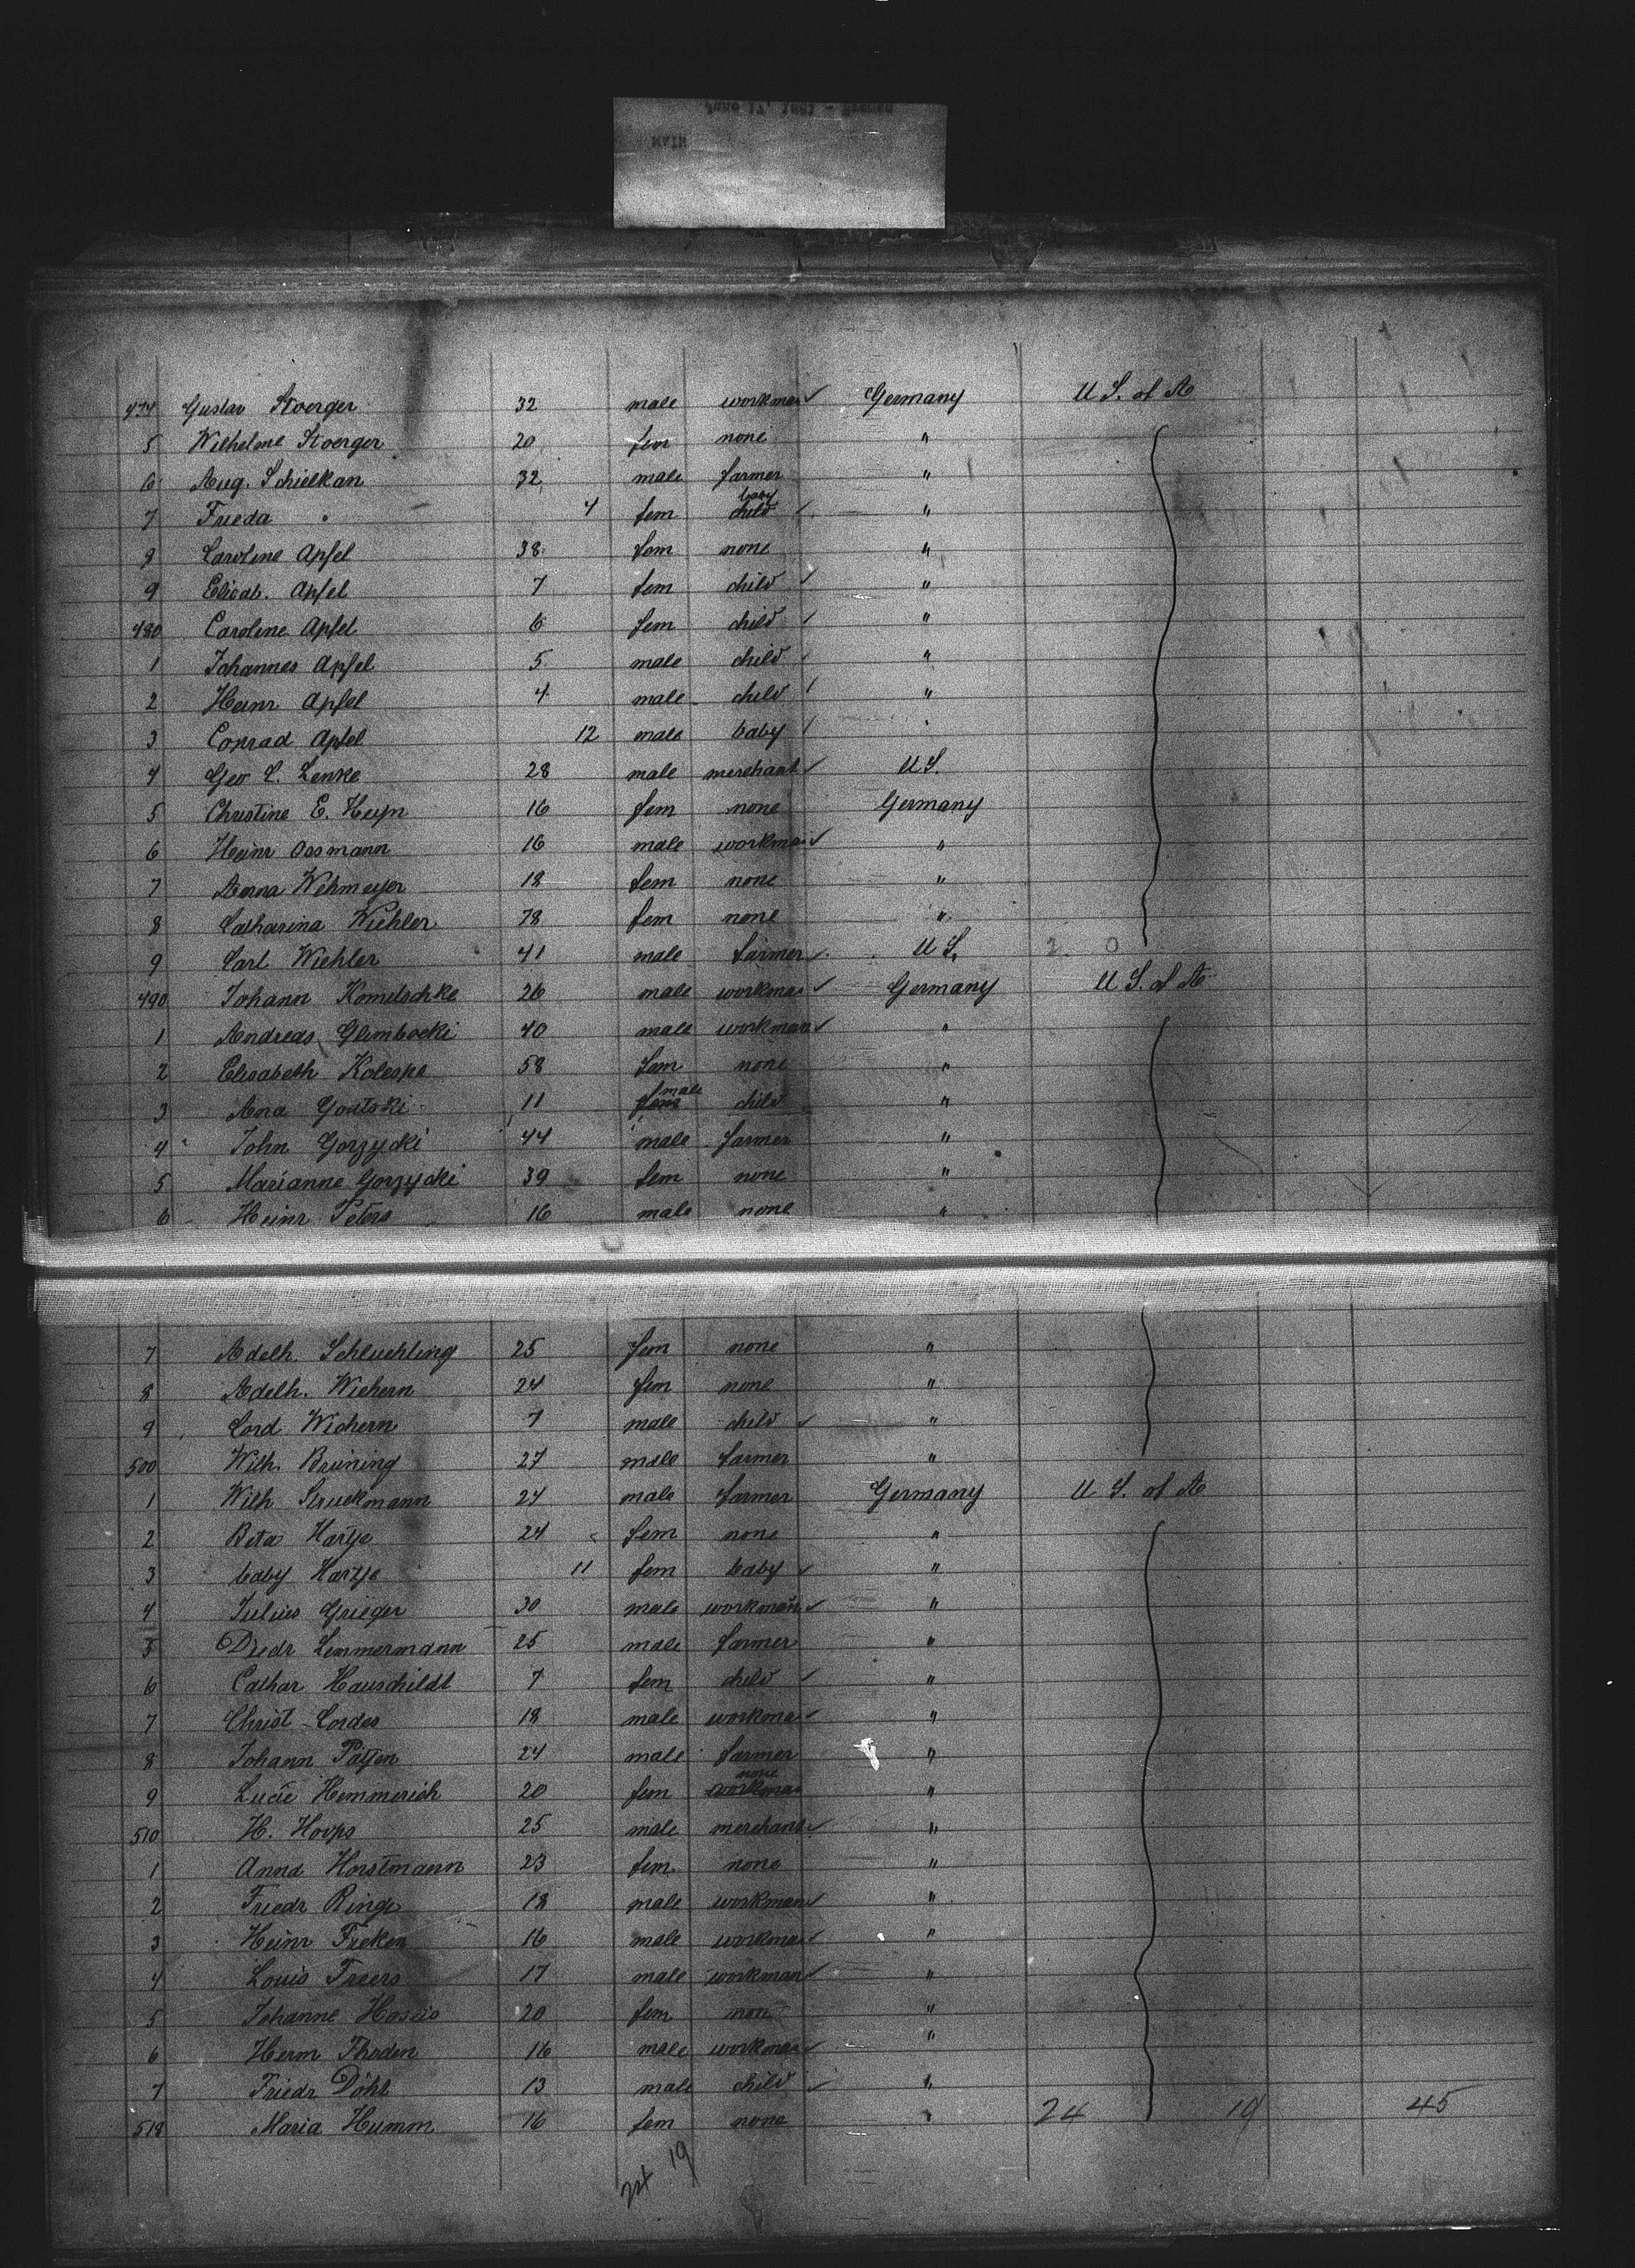 MAIN
474 Gustav Stoerger 32 male workman ✓ Germany U S. of A
5 Wilhelme Stoerger 20 fem none "
6 Aug. Schielkan 32 male farmer "
baby
7 Frieda " 4 fem child "
8 Caroline Apfel 38 fem none "
9 Elisab. Apfel 7 fem child ✓ "
480 Caroline Apfel 6 fem child "
1 Johannes Apfel 5 male child "
2 Heinr Apfel 4 male child "
3 Conrad Apfel 12 male baby "
4 Geo L. Lenke 28 male merchant ✓ U S.
5 Christine E. Heyn 16 fem none Germany
6 Heinr Ossmann 16 male workman ✓ "
7 Anna Wehmeyer 18 fem none "
8 Catharina Wiehler 78 fem none "
9 Carl Wiehler 41 male farmer ✓ U S. 2 0
490 Johann Komitschke 26 male workman ✓ Germany U S. of A
1 Andreas Glimbocki 40 male workman ✓ "
2 Elisabeth Kolespe 58 fem none "
male
3 Ana Goutski 11 fem child "
4 John Gorzycki 44 male farmer "
5 Marianne Gorzycki 39 fem none "
6 Heinr Peters 16 male none "
7 Adelh. Schluehting 25 fem none "
8 Adelh. Wichern 24 fem none "
9 Cord Wichern 7 male child ✓ "
500 Wilh. Brüning 27 male farmer "
1 Wilh Struckmann 24 male farmer Germany U S. of A
2 Beta Hartje 24 fem none "
3 baby Hartje 11 fem baby ✓ "
4 Julius Grieger 30 male workman ✓ "
5 Diedr Lemmermann 25 male farmer "
6 Cathar Hauschildt 7 fem child ✓ "
7 Christ Cordes 18 male workman ✓ "
8 Johann Patjen 24 male farmer "
none
9 Lucie Hemmerich 20 fem workman "
510 H. Hoops 25 male merchant ✓ "
1 Anna Horstmann 23 fem none "
2 Friedr Ringe 18 male workman ✓ "
3 Heinr Fieken 16 male workman ✓ "
4 Louis Freers 17 male workman ✓ "
5 Johanne 20 fem non "
6 Herm Thoden 16 male workman ✓ "
7 Friedr Döhl 13 male child ✓ "
518 Maria Humm 16 fem none " 24 19 45
24 19